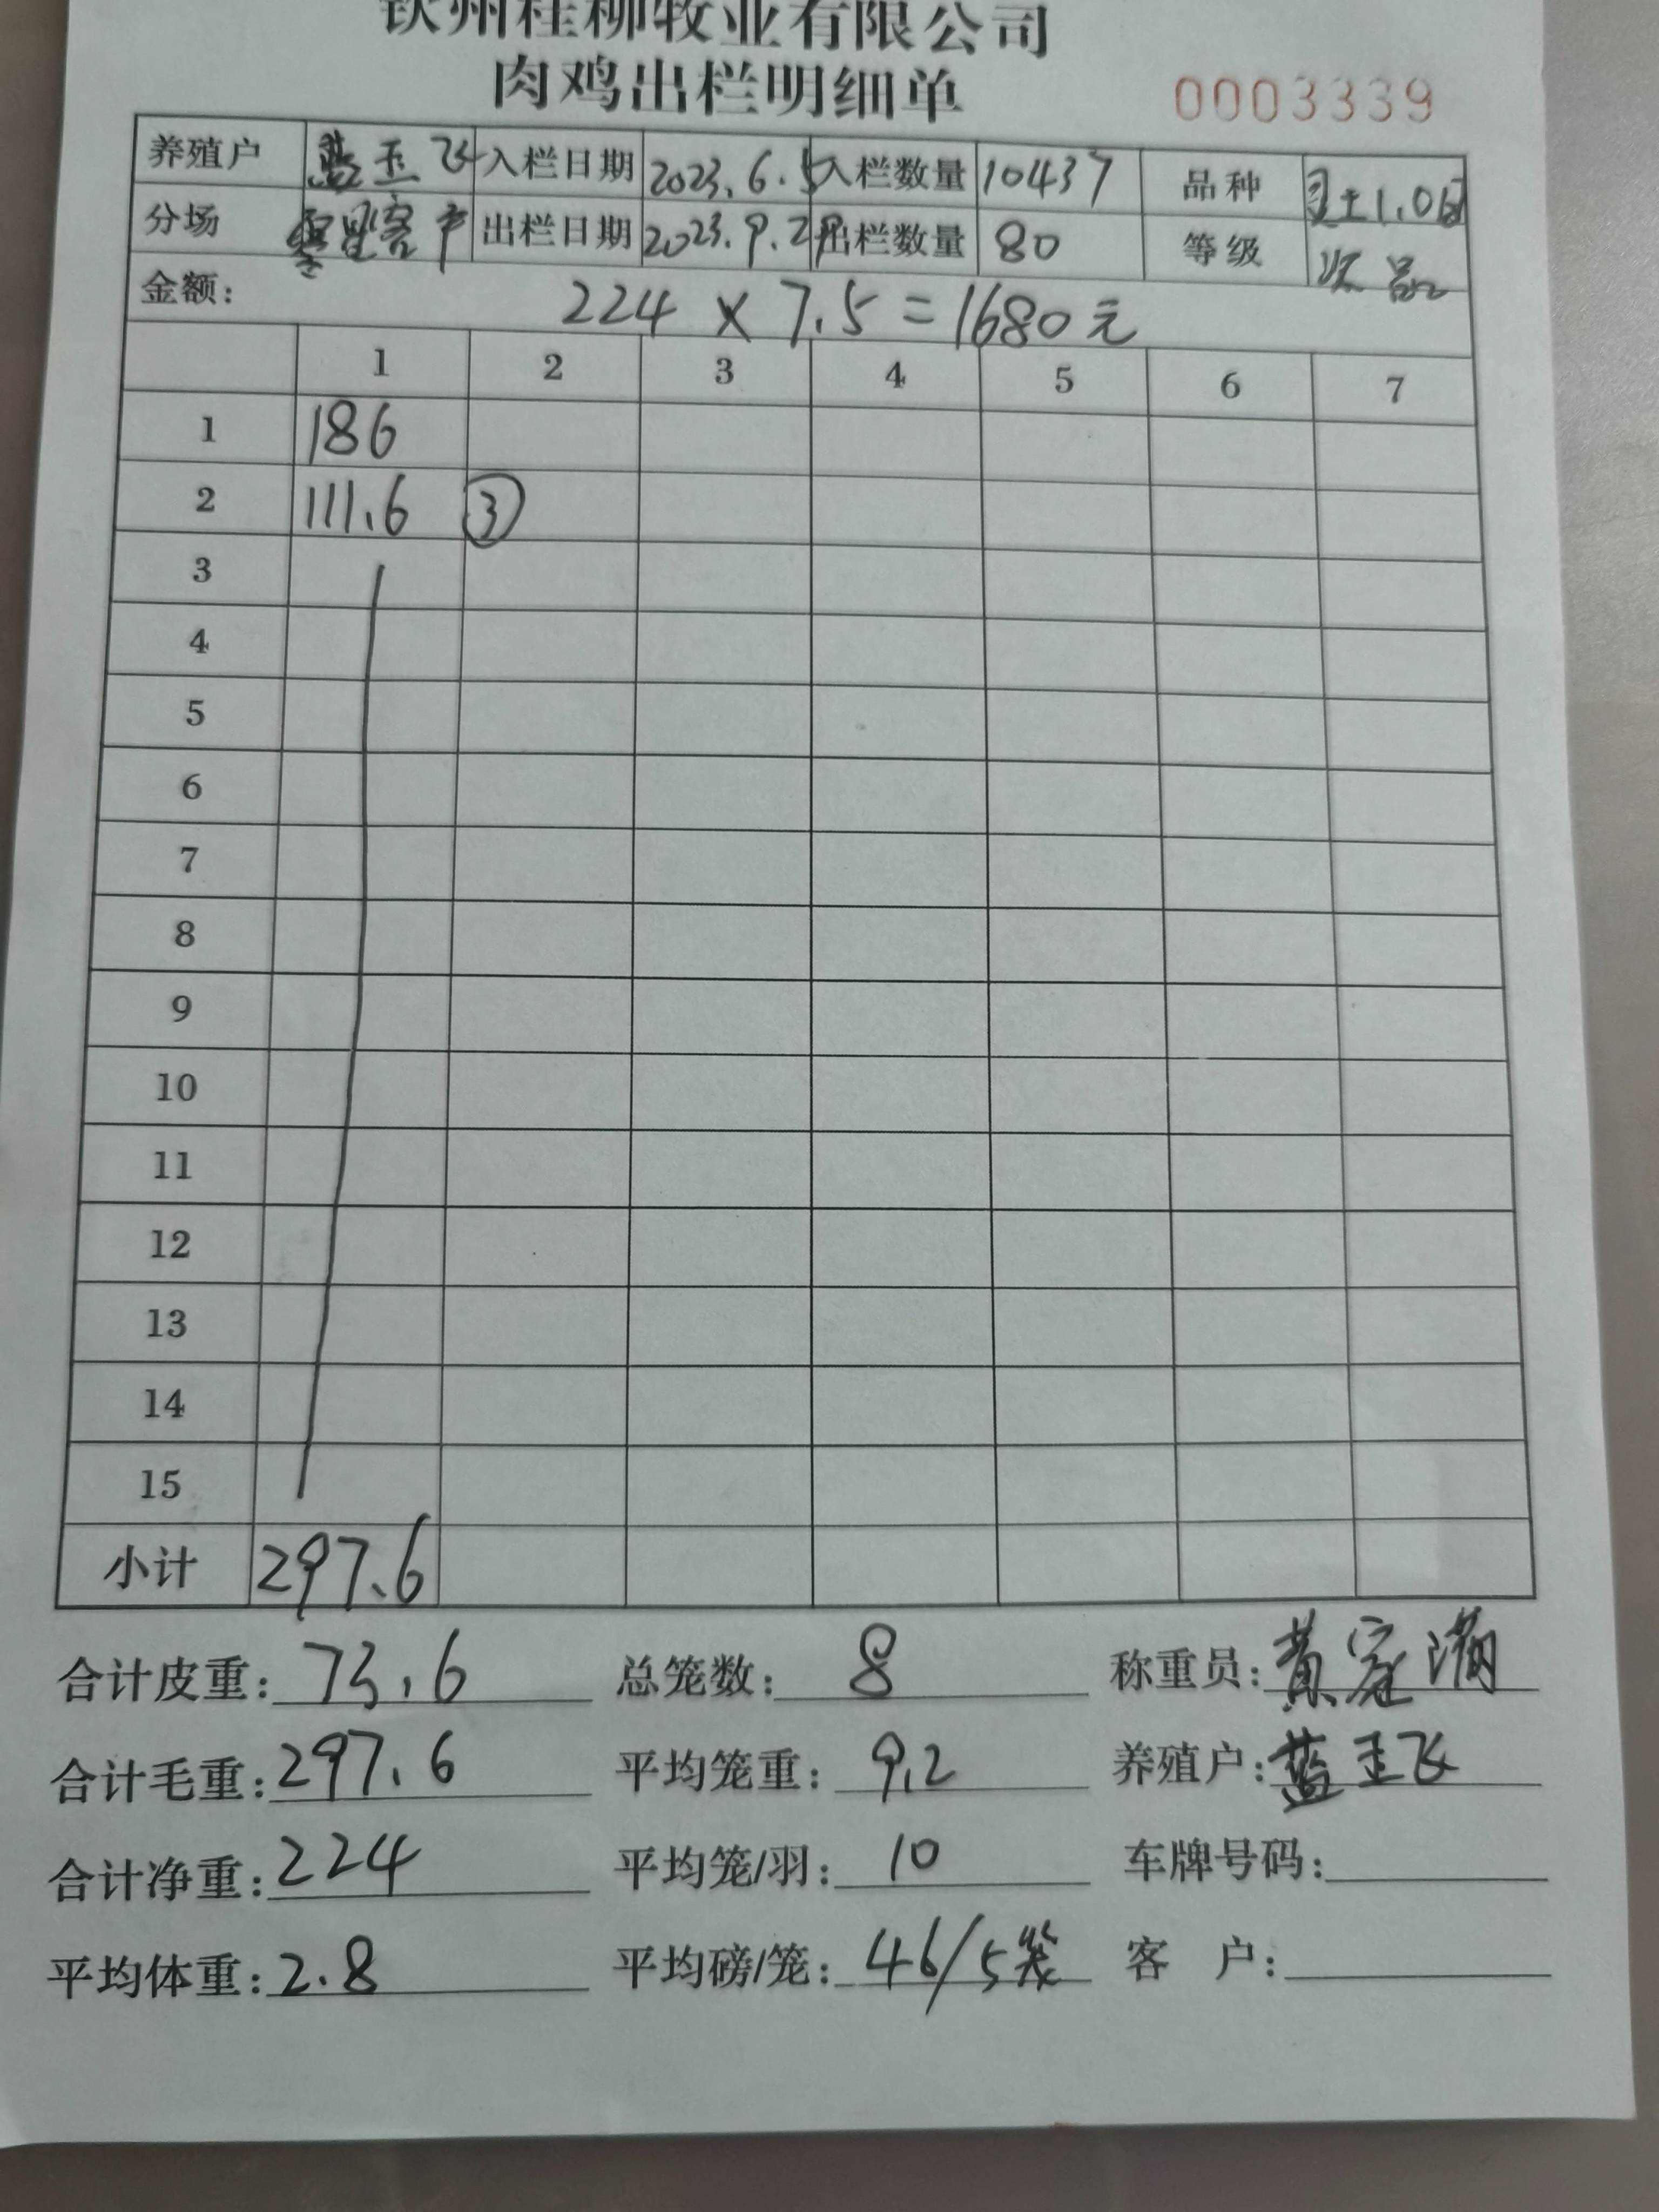 钦州桂柳牧业有限公司
肉鸡出栏明细单 0003339
养殖户 蓝玉飞 入栏日期 2023.6.5 入栏数量 10437 品种 土1.0
分场 零星客户 出栏日期 2023.9.29 出栏数量 80 等级 次品
金额: 224 × 7.5 = 1680元
1 2 3 4 5 6 7
1 186
2 111.6 ③
3
4
5
6
7
8
9
10
11
12
13
14
15
小计 297.6
合计皮重: 73.6 总笼数: 8 称重员: 黄
合计毛重: 297.6 平均笼重: 9.2 养殖户: 蓝玉飞
合计净重: 224 平均笼/羽: 10 车牌号码:
平均体重: 2.8 平均磅/笼: 46/5笼 客 户: